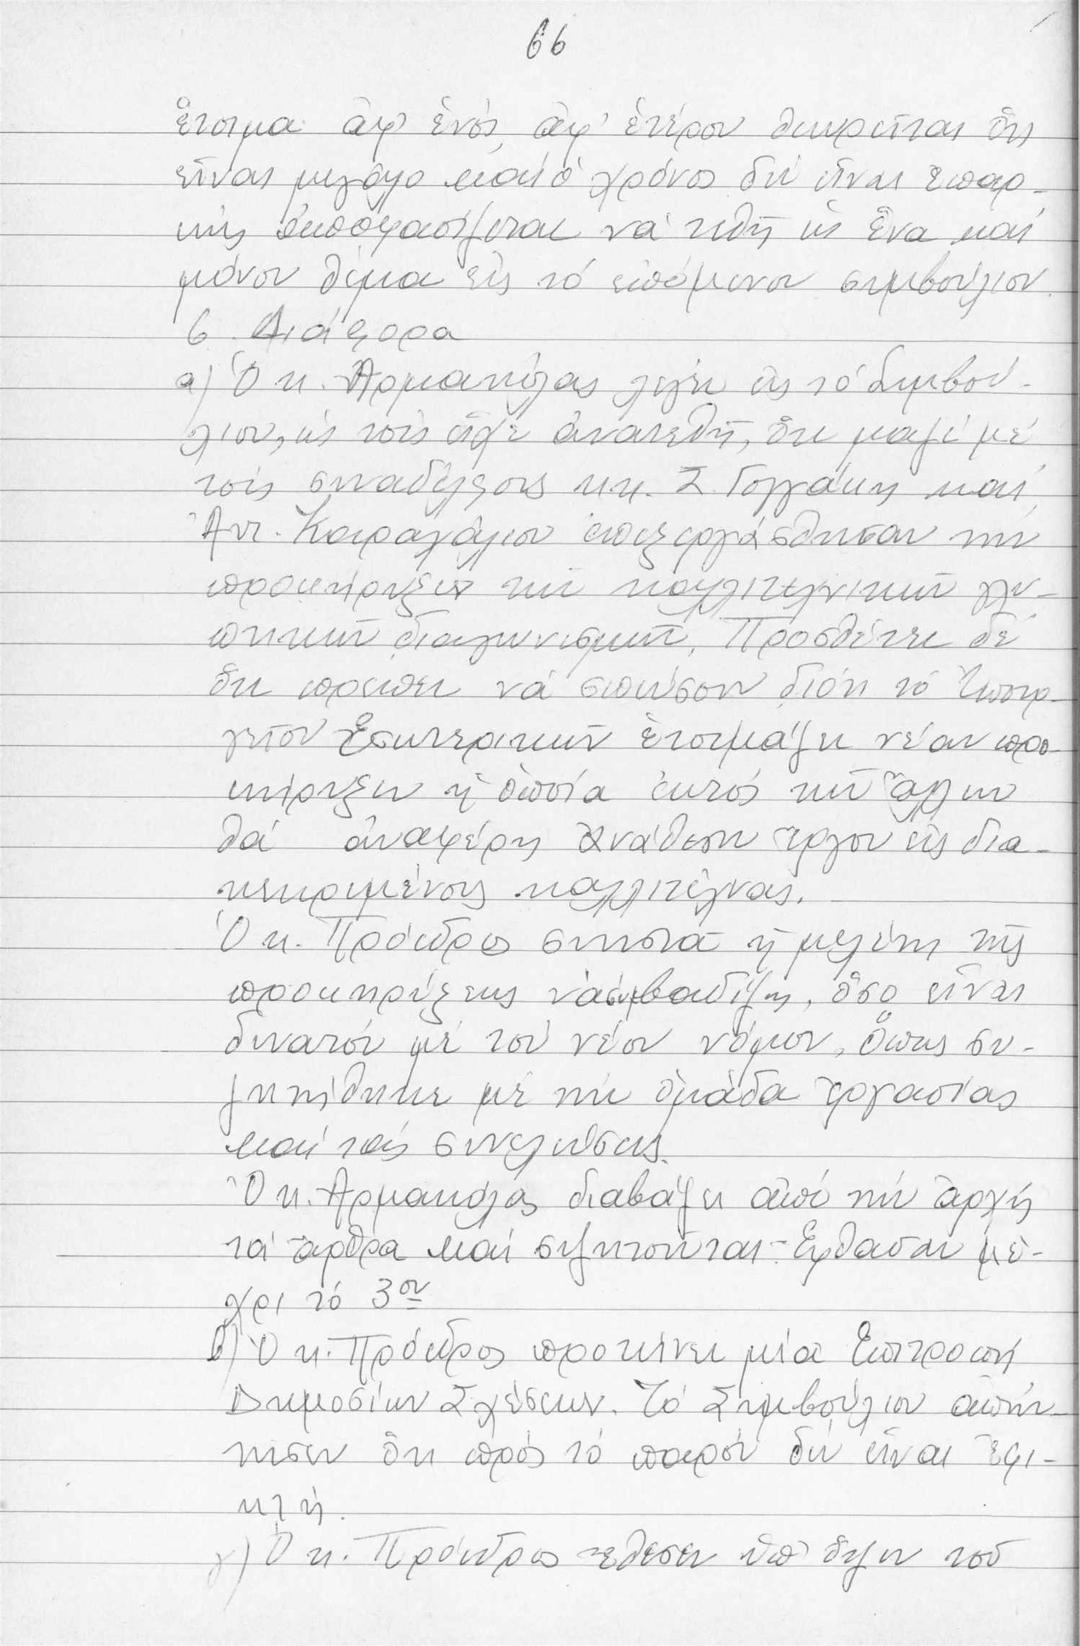 66
ἕτοιμα ἀφ' ἑνός, ἀφ' ἑτέρου θεωρεῖται ὅτι
εἶναι μεγάλο καί ὁ χρόνος δέν εἶναι ἐπαρ-
κής ἀποφασίζεται νά τεθῆ ὡς ἕνα καί
μόνον θέμα εἰς τό ἑπόμενον συμβούλιον.
6. Διάφορα
α) Ὁ κ. Ἀρμακόλας λέγει εἰς τό Συμβού-
λιον, ὡς τοῖς εἶχε ἀνατεθῆ, ὅτι μαζί μέ
τούς συναδέλφους κκ. Σ. Γογγάκη καί
Ἀντ. Καραχάλιον ἐπεξεργάσθησαν τήν
προκήρυξιν τῶν καλλιτεχνικῶν γλυ-
πτικῶν διαγωνισμῶν. Προσθέτει δέ
ὅτι πρέπει νά σπεύσουν διότι τό Ὑπουρ-
γεῖον Ἐσωτερικῶν ἑτοιμάζει νέαν προ-
κήρυξιν ἡ ὁποία ἐκτός τῶν ἄλλων
θά ἀναφέρη ἀνάθεσιν ἔργου εἰς δια-
κεκριμένους καλλιτέχνας.
Ὁ κ. Πρόεδρος συνιστᾶ ἡ μελέτη τῆς
προκηρύξεως νά συμβαδίζη, ὅσο εἶναι
δυνατόν μέ τόν νέον νόμον, ὅπως συ-
ζητήθηκε μέ τήν ὁμάδα ἐργασίας
καί τάς συνελεύσεις.
Ὁ κ. Ἀρμακόλας διαβάζει ἀπό τήν ἀρχή
τά ἄρθρα καί συζητοῦνται. Ἔφθασαν μέ-
χρι τό 3ον
β) Ὁ κ. Πρόεδρος προτείνει μία Ἐπιτροπή
Δημοσίων Σχέσεων. Τό Συμβούλιον ἀπήν-
τησεν ὅτι πρός τό παρόν δέν εἶναι ἐφι-
κτή.
γ) Ὁ κ. Πρόεδρος ἔθεσεν ὑπ' ὄψιν τοῦ